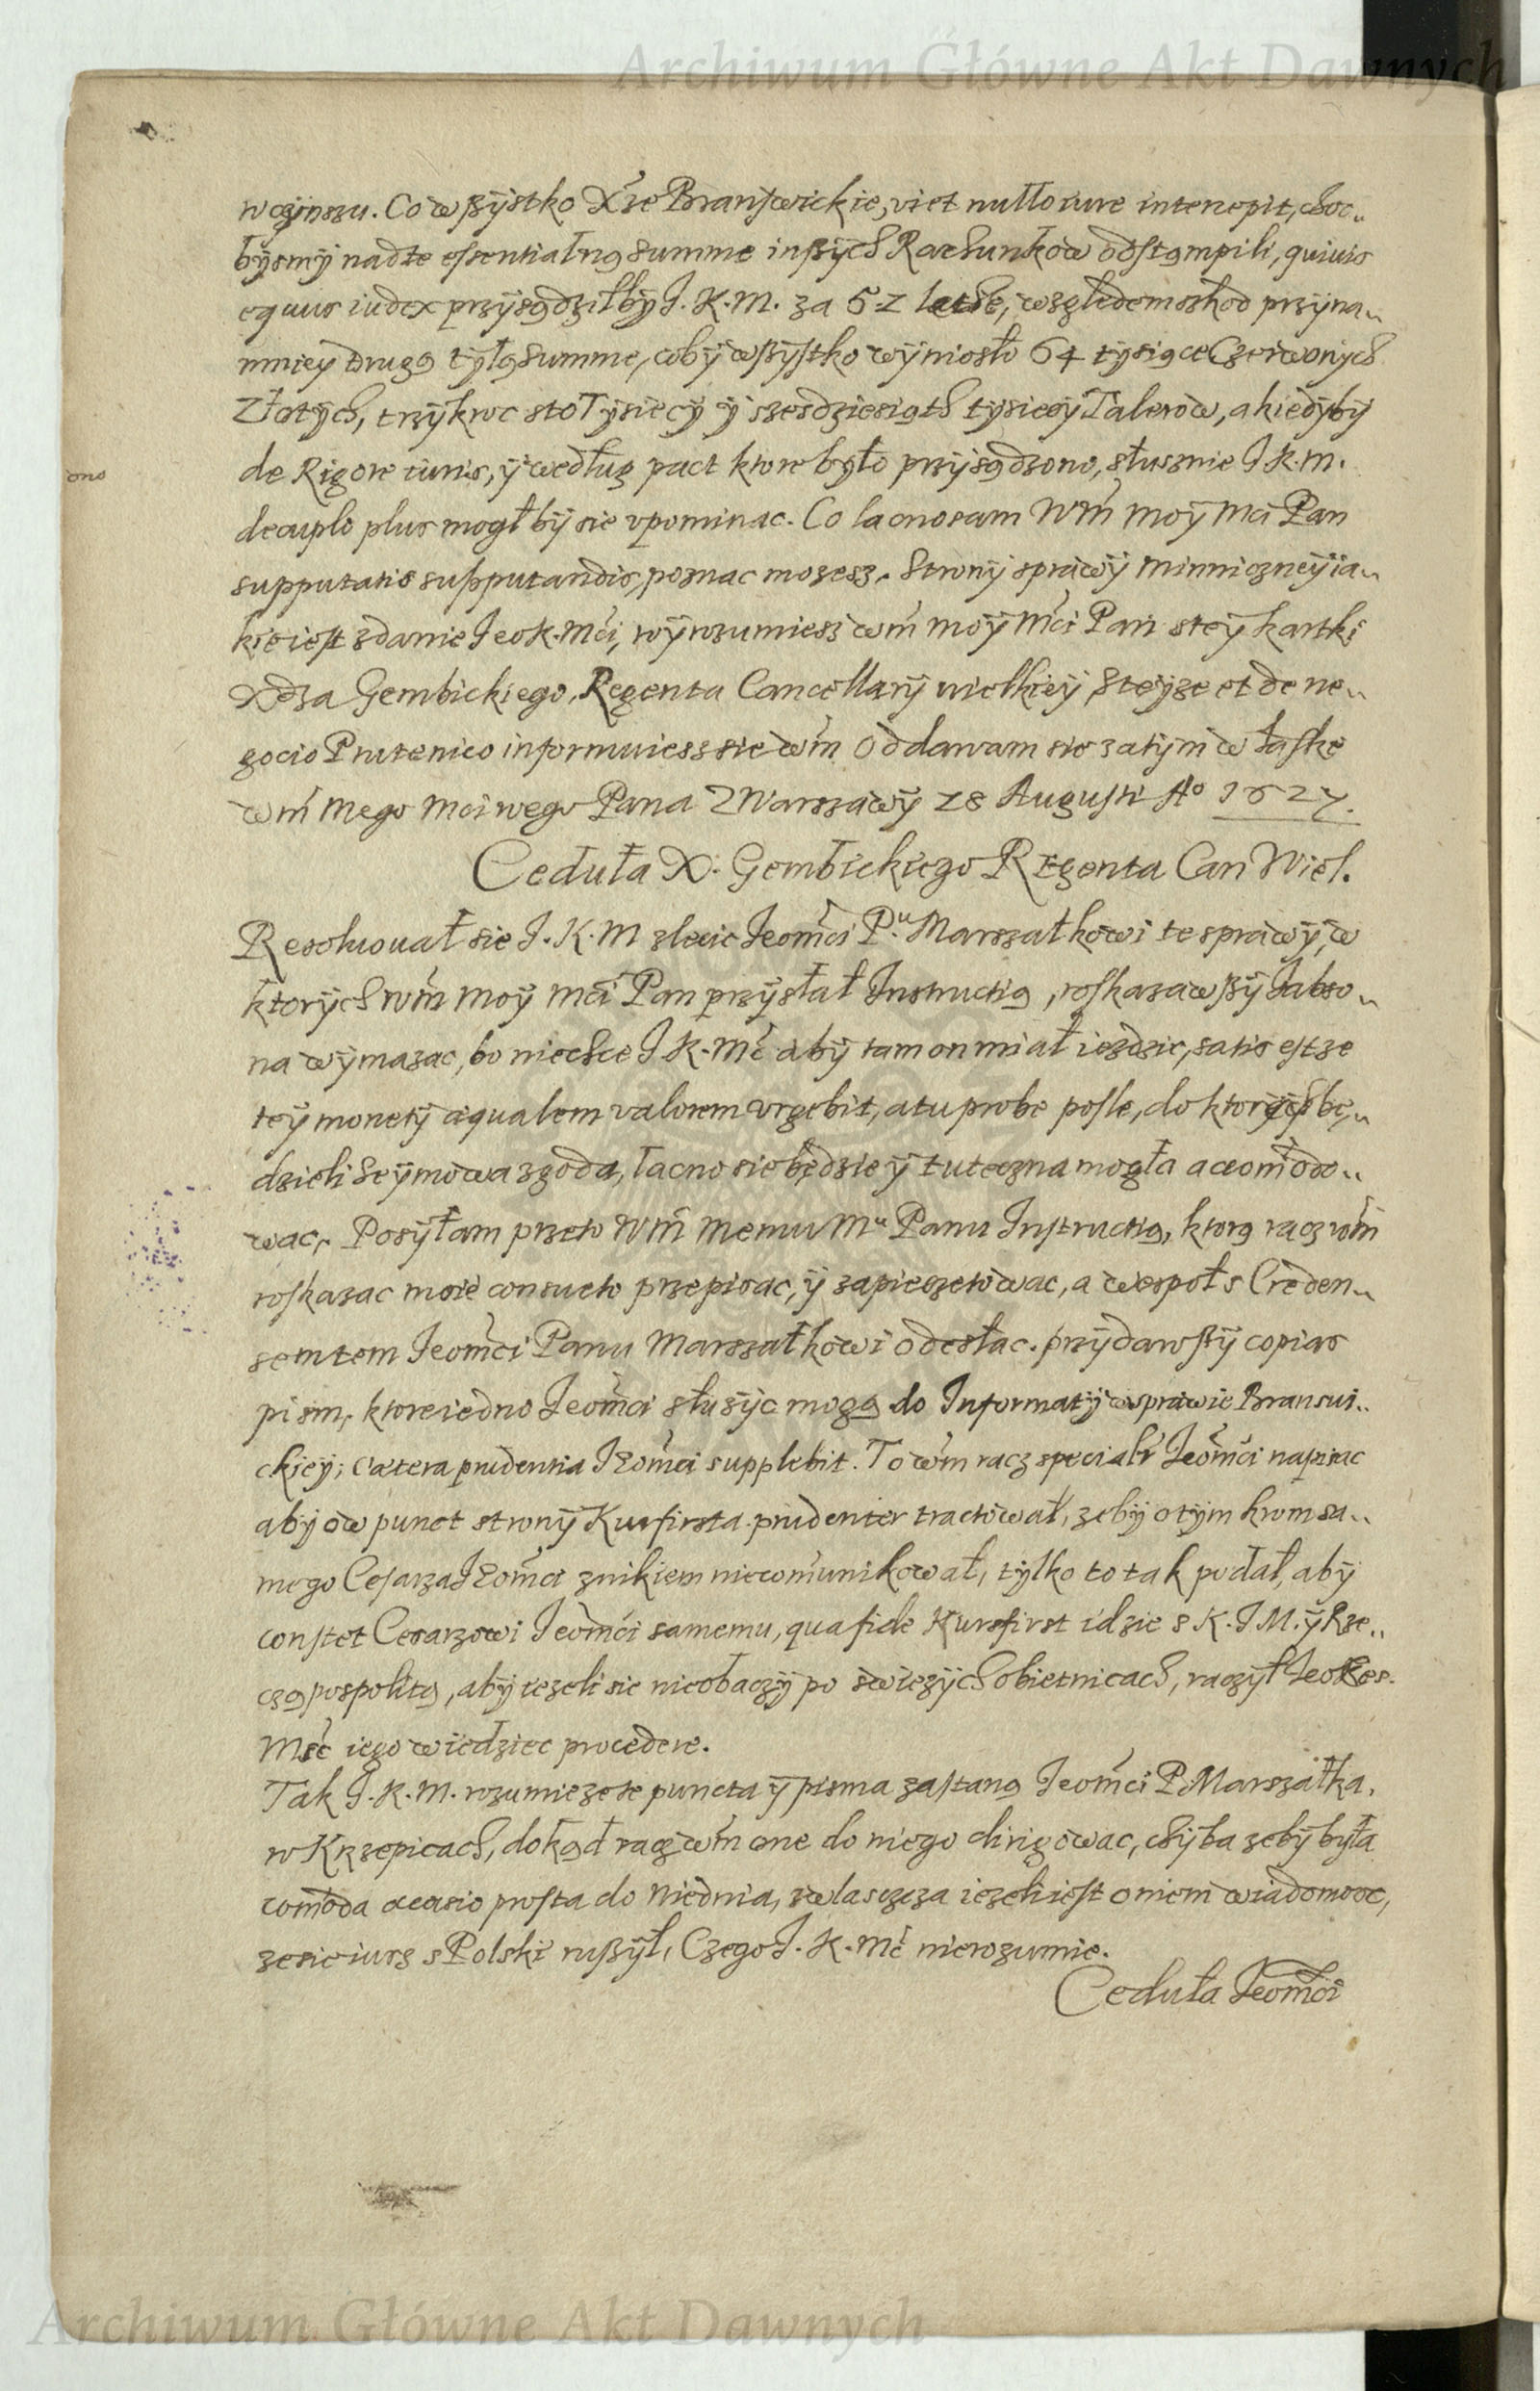 Archiwum Główne Akt Dawnych
w cżynszu. Co wszÿstko Xże Branswickie, vi et nullo iure intercepit, choc„
bÿsmÿ nad tę essentialną summe inszÿch Rachunkow odstąmpili, quiuis
equus iudex przÿsądziłbÿ J. K. M. za 52 lecie, względem szkod przÿna„
mnieÿ drugą tÿlą summe, cobÿ wszÿstko wÿniosło 64 tÿsiące Czerwonÿch
Złotÿch, trzÿkroc sto Tÿsiecÿ ÿ szesdziesiąth tÿsiecÿ Talerow, a kiedÿbÿ
ono
de Rigore iuris, ÿ według pact ktore było przÿsądzono, słusznie J K. M.
decuplo plus mogł bÿ sie vpominac. Co lacno sam Wm̃ moÿ Mci Pan
supputatis supputandis, poznac mozesz. Stronÿ sprawÿ Minniczneÿ ia„
kie iest zdanie Jeo K. Mci, wÿrozumiesz wm̃ moÿ Mci Pan s teÿ kartki
Xdza Gembickiego, Regenta Cancellarÿ wielkieÿ, s teÿze et de ne„
gocio Prutenico informuiesz sie wm̃ Oddawam sie zatÿm w łaskę
wm̃ mego Mciwego Pana Z Warszawÿ 28 Augusti Aº 1627.
Ceduła X. Gembickiego Regenta Can Wiel.
Resoluouał sie J. K. M zlecic Jeom̃ci P.ᵘ Marszałkowi te sprawÿ, w
ktorÿch Wm̃ moÿ Mci Pan przÿsłał Instructią, roskazawszÿ Jabso„
na wÿmazac, bo niechce J K. Mć abÿ tam on miał iezdzic, satis est ze
teÿ monetÿ aqualem valorem urgebit, a tu probe posle, do ktorÿch bę„
dzieli Seÿmowa zgoda, łacno sie będzie ÿ tuteczna mogła accom̃odo„
wac. Posÿłam przeto Wm̃ memu Mᵘ Panu Instructią, ktorą racz wm̃
roskazac more consueto przepisac, ÿ zapieczetowac, a wespoł s Creden„
semtem Jeom̃ci Panu Marszałkowi odesłac. przÿdawszÿ copias
pism, ktore iedno Jeom̃ci słuzÿc mogą do Informatÿ w sprawie Bransui„
ckieÿ; cætera prudentia Jeom̃ci supplebit. To wm̃ racz specialr Jeom̃ci napisac
abÿ ow punct stronÿ Kurfirsta prudenter tractował, zebÿ o tÿm krom sa„
mego Cesarza Jeom̃ci z nikiem niecom̃unikował, tÿlko to tak podał, abÿ
constet Cesarzowi Jeom̃ci samemu, qua fide Kurfirst idzie s K. J M. ÿ Rze„
cząpospolitą, abÿ iezeli sie nieobaczÿ po swiezÿch obietnicach, raczÿł Jeo Ces.
Msć iego wiedziec procedere.
Tak J. K. M. rozumie ze te puncta ÿ pisma zastaną Jeom̃ci P Marszałka,
w Krzepicach, dokąd racz wm̃ one do niego dirigowac, chÿba zebÿ była
com̃oda occasio prosta do Wiednia, zwlaszcza iezeli iest o niem wiadomosc,
ze sie iusz s Polski ruszÿł, Czego J. K. Mć nierozumie.
Ceduła Jeom̃ci
Archiwum Główne Akt Dawnych